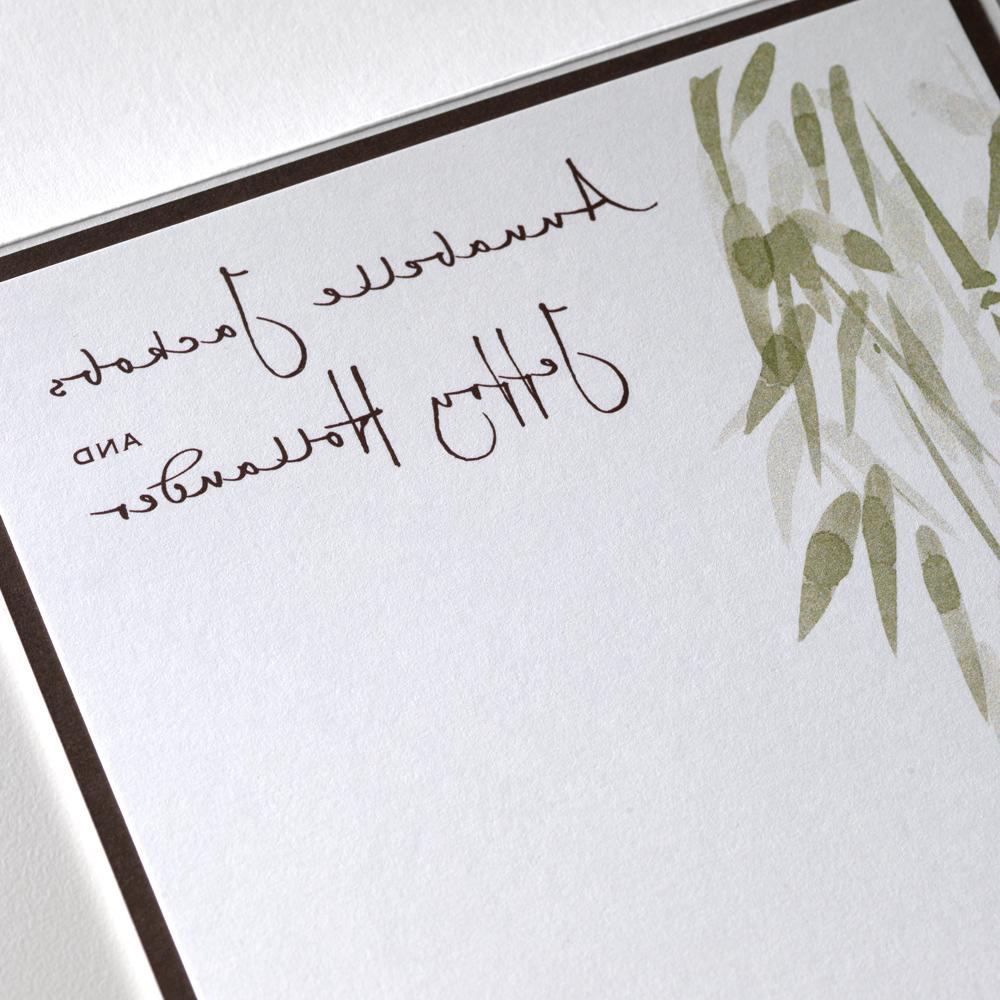 Annabelle Jackobs
AND
Jeffory Hollander